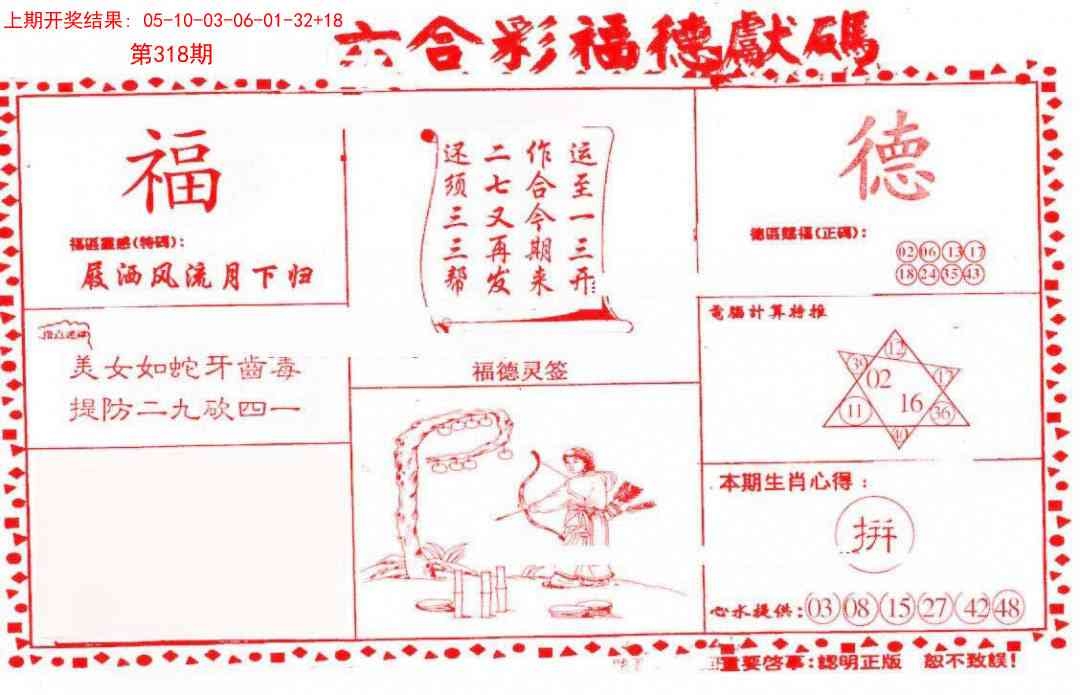 上期开奖结果: 05-10-03-06-01-32+18
第318期
六合彩福德獻碼
福
福區靈感(特碼):
屐洒风流月下归
美女如蛇牙齒毒
提防二九砍四一
运至一三开
作合今期来
二七又再发
还须三三帮
福德灵签
德
德區賜福(正碼):
02 06 13 17
18 24 35 43
電腦計算特推
12
39 02 17
11 16 36
40
本期生肖心得:
拼
心水提供: 03 08 15 27 42 48
重要啓事:認明正版 恕不致誤!